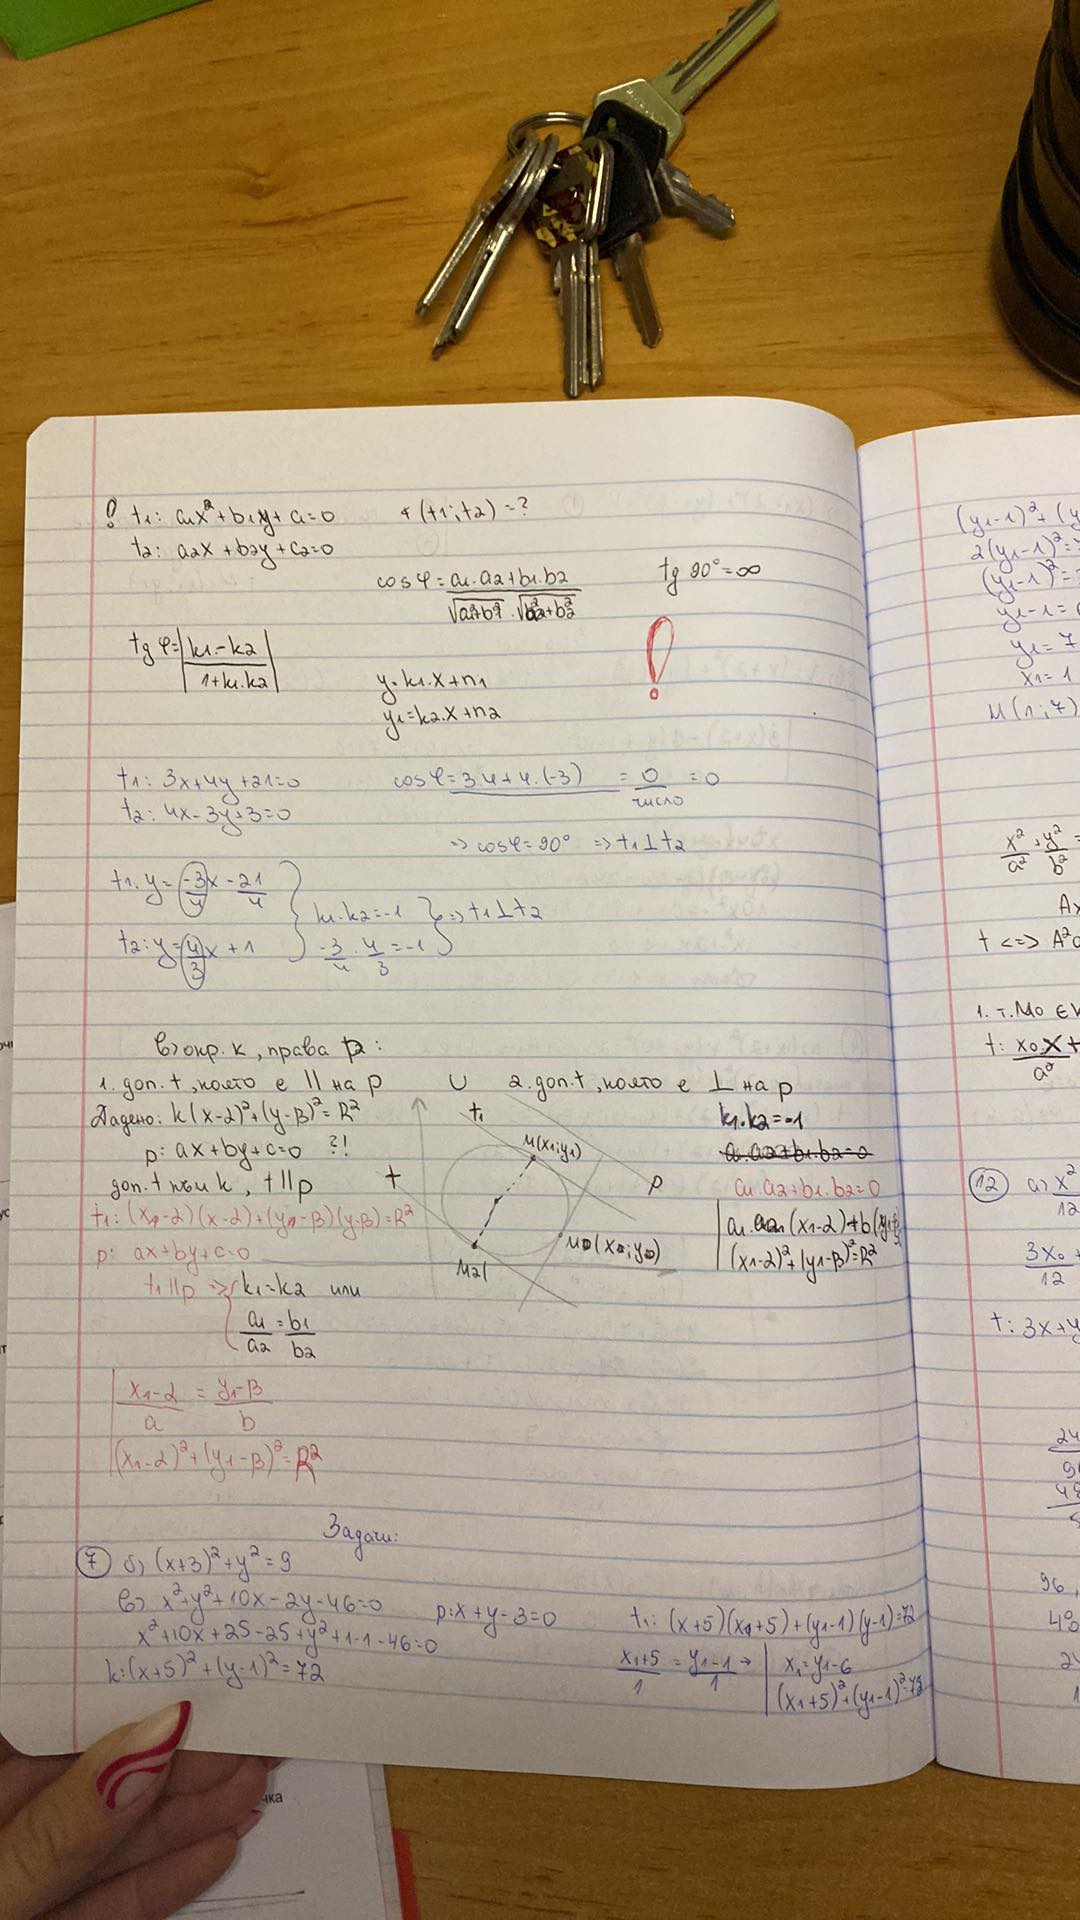 ! t1: a1x²+b1y+c1=0 ∢(t1;t2)=?
t2: a2x+b2y+c2=0
cosφ=a1.a2+b1.b2 tg 90°=∞
tgφ=|k1-k2
1+k1.k2|
y=k1.x+n1
y1=k2.x+n2
!
t1: 3x+4y+21=0 cosφ=3.4+4.(-3) = 0 = 0
число
t2: 4x-3y+3=0
=> cosφ=90° => t1⊥t2
t1: y=-3/4x-21/4
k1.k2=-1 => t1⊥t2
t2: y=4/3x+1 -3/4 . 4/3=-1
в) окр. k, права p:
1. доп. t, която е || на p U 2. доп. t, която е ⊥ на p
Дадено: k(x-α)²+(y-β)²=R² t1 M(x1;y1) k1.k2=-1
p: ax+by+c=0 ?! a1.a2+b1.b2=0
доп. t към k, t||p t p a1.a2+b1.b2=0
t1: (x1-α)(x-α)+(y1-β)(y-β)=R²
p: ax+by+c=0 M2 (x1-α)²+(y1-β)²=R²
t1||p => k1=k2 или
a1/a2=b1/b2
x1-α/a = y1-β/b
(x1-α)²+(y1-β)²=R²
Задачи:
7 б) (x+3)²+y²=9
в) x²+y²+10x-2y-46=0 p: x+y-3=0 t1: (x+5)(x1+5)+(y1-1)(y-1)=72
x²+10x+25-25+y²+1-1-46=0
k:(x+5)²+(y-1)²=72 x1+5/1=y1-1/1 → x1=y1-6
(x1+5)²+(y1-1)²=72
2(y1-1)²=
(y1-1)²=
y1-1=
y1=7
x1=1
M(1;7)
x²/a²+y²/b²=
t <=> A²
1. т. M0 ∈
t: x0.x/a²+
12 a) x²/12
3x0/12
t: 3x+
96,
чка